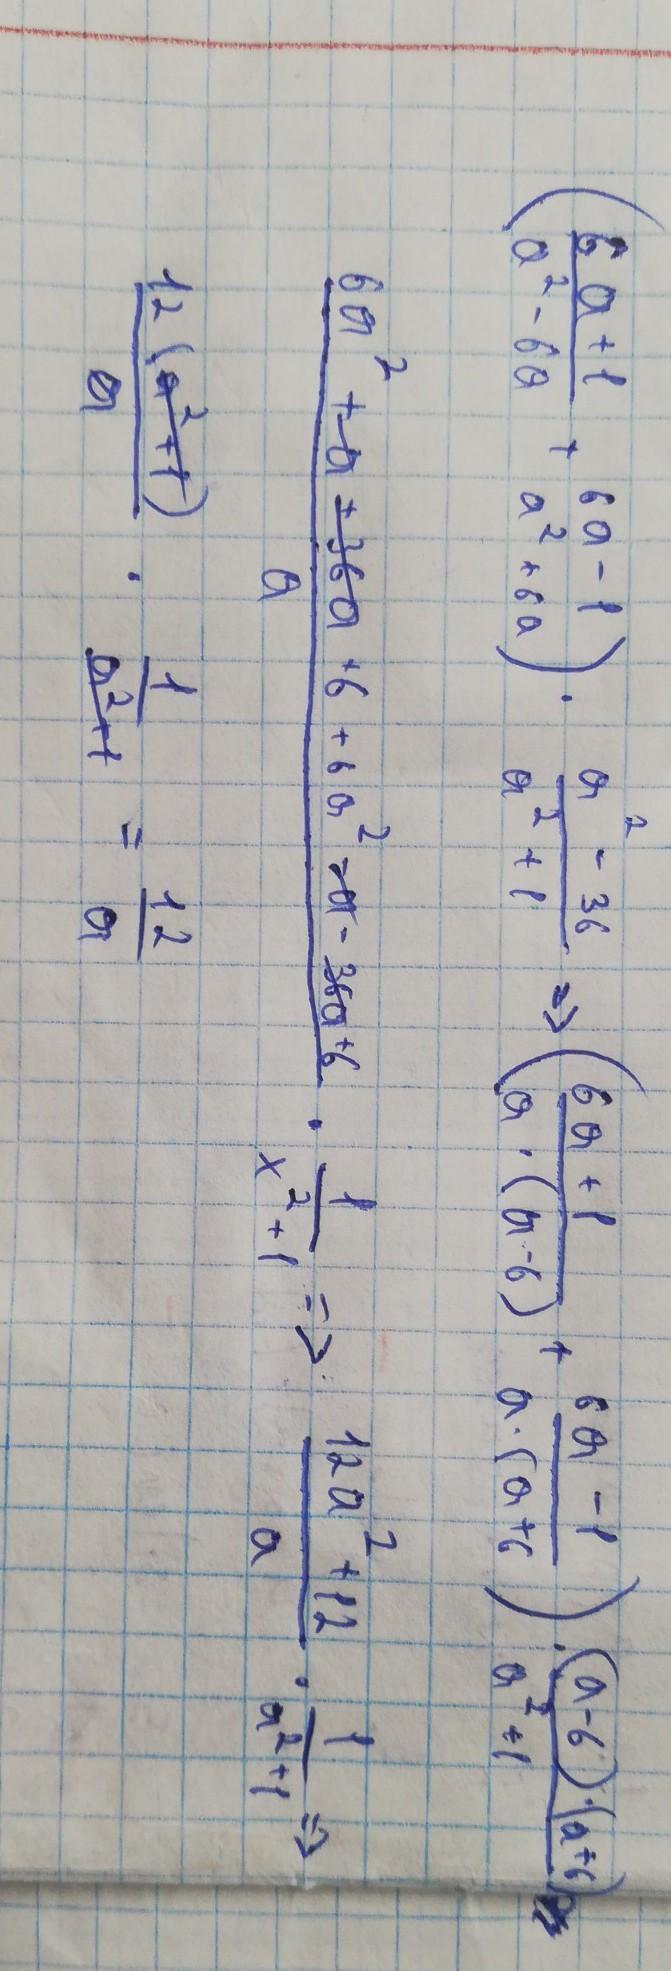 (6a+1/a²-6a + 6a-1/a²+6a) · a²-36/a²+1 => (6a+1/a·(a-6) + 6a-1/a·(a+6) · (a-6)·(a+6)/a²+1 =>
6a²+a+36a+6+6a²-a-36a+6/a · 1/x²+1 => 12a²+12/a · 1/a²+1 =>
12(a²+1)/a · 1/a²+1 = 12/a